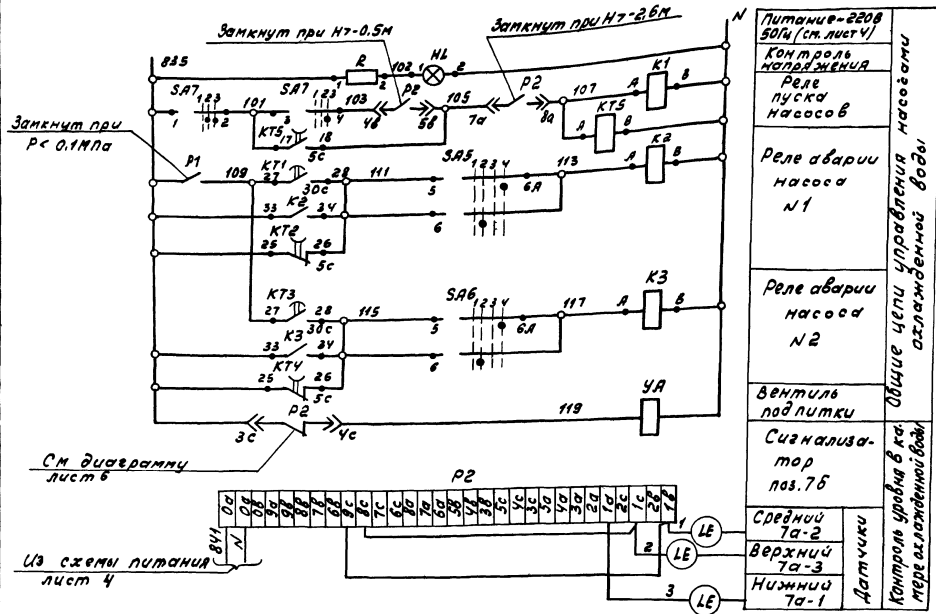 Замкнут при Н≥-0.5м
Замкнут при Н≥-2.6м
N
835
R
1
2
102
1
HL
2
SA7
1 2 3
1
2
101
SA7
1 2 3
3
4
103
P2
4в
5в
105
P2
7а
8а
107
A
K1
B
A
KT5
B
KT5
17
18
5с
Замкнут при
Р< 0.1МПа
P1
109
KT1
27
28
30с
111
SA5
1 2 3 4
5
6А
113
A
K2
B
K2
33
34
6
KT2
25
26
5с
KT3
27
28
30с
115
SA6
1 2 3 4
5
6А
117
A
K3
B
K3
33
34
6
KT4
25
26
5с
P2
3с
4с
119
УА
См диаграмму
лист 6
P2
841
N
Из схемы питания
лист 4
1
LE
2
LE
3
LE
Питание~220В
50Гц (см. лист 4)
Контроль
напряжения
Реле
пуска
насосов
Реле аварии
насоса
N1
Реле аварии
насоса
N2
Вентиль
подпитки
Сигнализа-
тор
поз. 7б
Средний
7а-2
Верхний
7а-3
Нижний
7а-1
Датчики
Общие цепи управления насосами
охлажденной воды
Контроль уровня в ка-
мере охлажденной воды